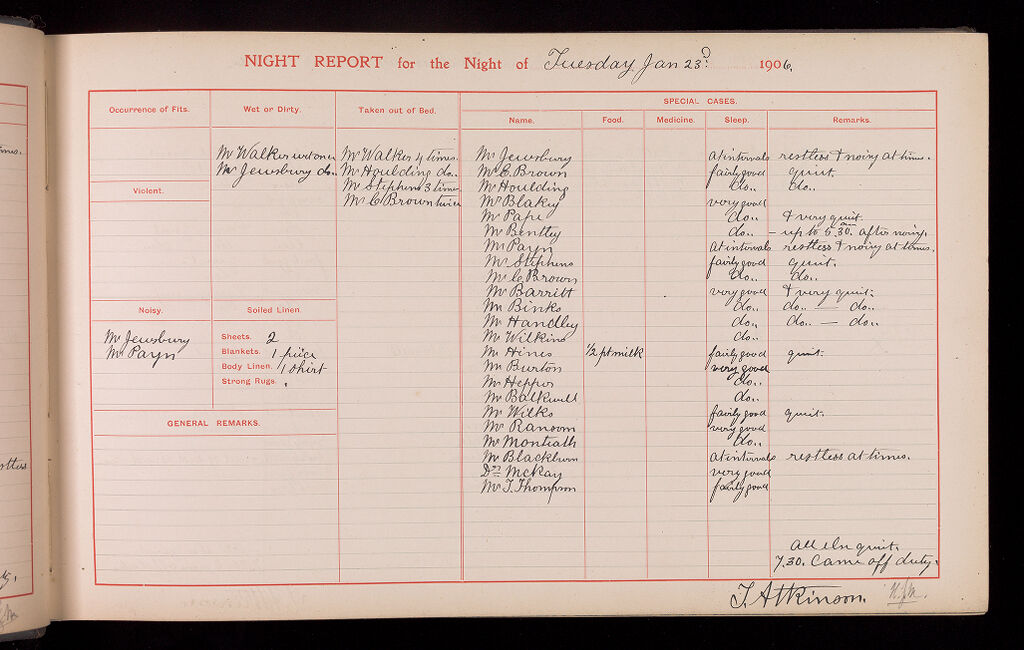 NIGHT REPORT for the Night of Tuesday Jan 23d. 1906.
Occurrence of Fits.
Wet or Dirty.
Mr Walker wet once
Mr Jewsbury do..
Taken out of Bed.
Mr Walker 4 times.
Mr Houlding do..
Mr Stephens 3 times
Mr C Brown twice
Violent.
Noisy.
Mr Jewsbury
Mr Payn
Soiled Linen.
Sheets. 2
Blankets. 1 piece
Body Linen. 1 shirt
Strong Rugs. .
GENERAL REMARKS.
SPECIAL CASES.
Name. Food. Medicine. Sleep. Remarks.
Mr Jewsbury at intervals restless & noisy at times.
Mr E. Brown fairly good quiet.
Mr Houlding do.. do..
Mr Blakey very good
Mr Pape do.. & very quiet.
Mr Bentley do.. – up to 5.30 am after noisy.
Mr Payn at intervals restless & noisy at times.
Mr Stephens fairly good quiet.
Mr C. Brown do.. do..
Mr Barritt very good & very quiet.
Mr Binks do.. do.. — do..
Mr Handley do.. do.. — do..
Mr Wilkins do..
Mr Hines 1/2 pt milk fairly good quiet.
Mr Burton very good
Mr Heppos do..
Mr Balkwill do..
Mr Wilks fairly good quiet.
Mr Ransom very good
Mr Monteath do..
Mr Blackburn at intervals restless at times.
Dr McKay very good
Mr T. Thompson fairly good
All else quiet.
7.30. Came off duty.
T. Atkinson.